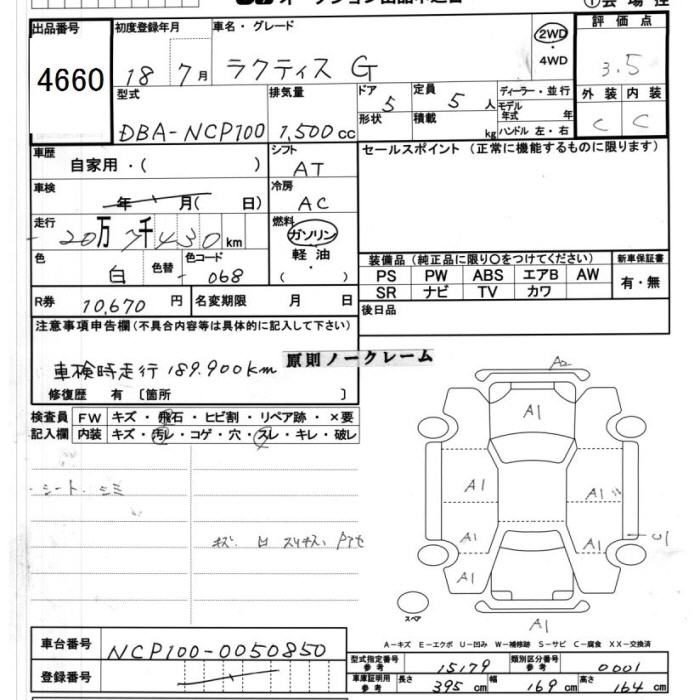 出品番号 初度登録年月 車名・グレード 評価点
4660 18 7月 ラクティス G 2WD 4WD 3.5
型式 排気量 ドア 5 定員 5人 ディーラー・並行 外装 内装
DBA-NCP100 1,500cc 形状 積載 kg モデル年式 年 ハンドル 左・右 C C
車歴 シフト セールスポイント(正常に機能するものに限ります)
自家用・( ) AT
車検 冷房
年 月( 日) AC
走行 燃料
20万 千430km ガソリン
色 色替 色コード 軽油 装備品(純正品に限り○をつけてください) 新車保証書
白 068 ( ) PS PW ABS エアB AW 有・無
SR ナビ TV カワ
R券 10,670円 名変期限 月 日 後日品
注意事項申告欄(不具合内容等は具体的に記入して下さい)
車検時走行 189.900km 原則ノークレーム
修復歴 有 〔箇所 〕
検査員 FW キズ・飛石・ヒビ割・リペア跡・×要
記入欄 内装 キズ・汚レ・コゲ・穴・スレ・キレ・破レ
A2
A1
A1 A1
A1 A1 U1
A1
A1
・シート・シミ
スペア
A-キズ E-エクボ U-凹み W-補修跡 S-サビ C-腐食 XX-交換済
車台番号 NCP100-0050850
型式指定番号 参考 15179 類別区分番号 参考 0001
登録番号
車庫証明用 参考 長さ 395cm 幅 169cm 高さ 164cm